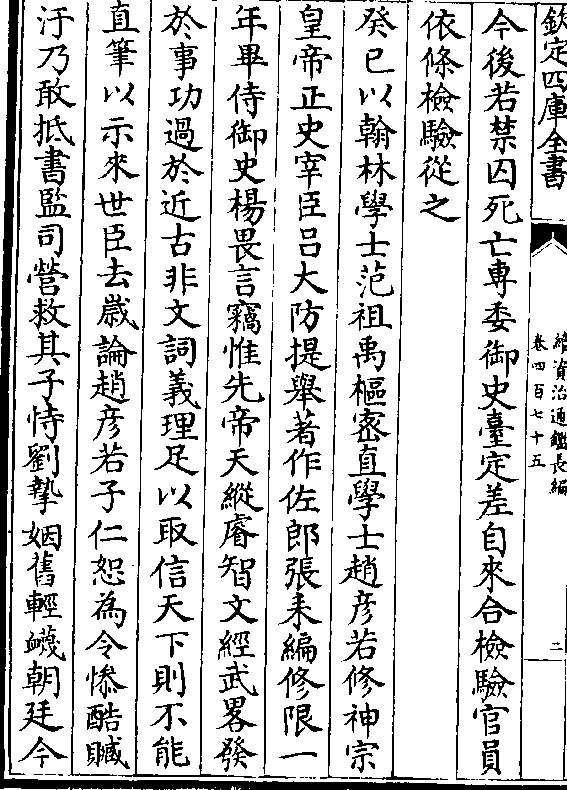 欽定四庫全書
續資治通鑑長編
卷四百七十五
二
今後若禁囚死亡専委御史臺定差自來合檢驗官員
依條檢驗從之
癸巳以翰林學士范祖禹樞密直學士趙彦若修神宗
皇帝正史宰臣吕大防提舉著作佐郎張耒編修限一
年畢侍御史楊畏言竊惟先帝天縱睿智文經武畧發
於事功過於近古非文詞義理足以取信天下則不能
直筆以示來世臣去嵗論趙彦若子仁恕為令慘酷贓
汙乃敢抵書監司營救其子恃劉摯姻舊輕衊朝廷今